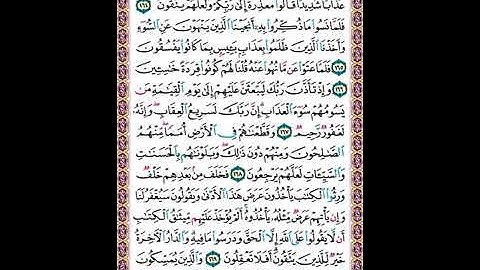 عَذَابًا شَدِيدًا قَالُوا مَعْذِرَةً إِلَىٰ رَبِّكُمْ وَلَعَلَّهُمْ يَتَّقُونَ ١٦٤
فَلَمَّا نَسُوا مَا ذُكِّرُوا بِهِ أَنجَيْنَا الَّذِينَ يَنْهَوْنَ عَنِ السُّوءِ
وَأَخَذْنَا الَّذِينَ ظَلَمُوا بِعَذَابٍ بَئِيسٍ بِمَا كَانُوا يَفْسُقُونَ
١٦٥ فَلَمَّا عَتَوْا عَن مَّا نُهُوا عَنْهُ قُلْنَا لَهُمْ كُونُوا قِرَدَةً خَاسِئِينَ
١٦٦ وَإِذْ تَأَذَّنَ رَبُّكَ لَيَبْعَثَنَّ عَلَيْهِمْ إِلَىٰ يَوْمِ الْقِيَامَةِ مَن
يَسُومُهُمْ سُوءَ الْعَذَابِ إِنَّ رَبَّكَ لَسَرِيعُ الْعِقَابِ وَإِنَّهُ
لَغَفُورٌ رَّحِيمٌ ١٦٧ وَقَطَّعْنَاهُمْ فِي الْأَرْضِ أُمَمًا مِّنْهُمُ
الصَّالِحُونَ وَمِنْهُمْ دُونَ ذَٰلِكَ وَبَلَوْنَاهُم بِالْحَسَنَاتِ
وَالسَّيِّئَاتِ لَعَلَّهُمْ يَرْجِعُونَ ١٦٨ فَخَلَفَ مِن بَعْدِهِمْ خَلْفٌ
وَرِثُوا الْكِتَابَ يَأْخُذُونَ عَرَضَ هَٰذَا الْأَدْنَىٰ وَيَقُولُونَ سَيُغْفَرُ لَنَا
وَإِن يَأْتِهِمْ عَرَضٌ مِّثْلُهُ يَأْخُذُوهُ أَلَمْ يُؤْخَذْ عَلَيْهِم مِّيثَاقُ الْكِتَابِ
أَن لَّا يَقُولُوا عَلَى اللَّهِ إِلَّا الْحَقَّ وَدَرَسُوا مَا فِيهِ وَالدَّارُ الْآخِرَةُ
خَيْرٌ لِّلَّذِينَ يَتَّقُونَ أَفَلَا تَعْقِلُونَ ١٦٩ وَالَّذِينَ يُمَسِّكُونَ